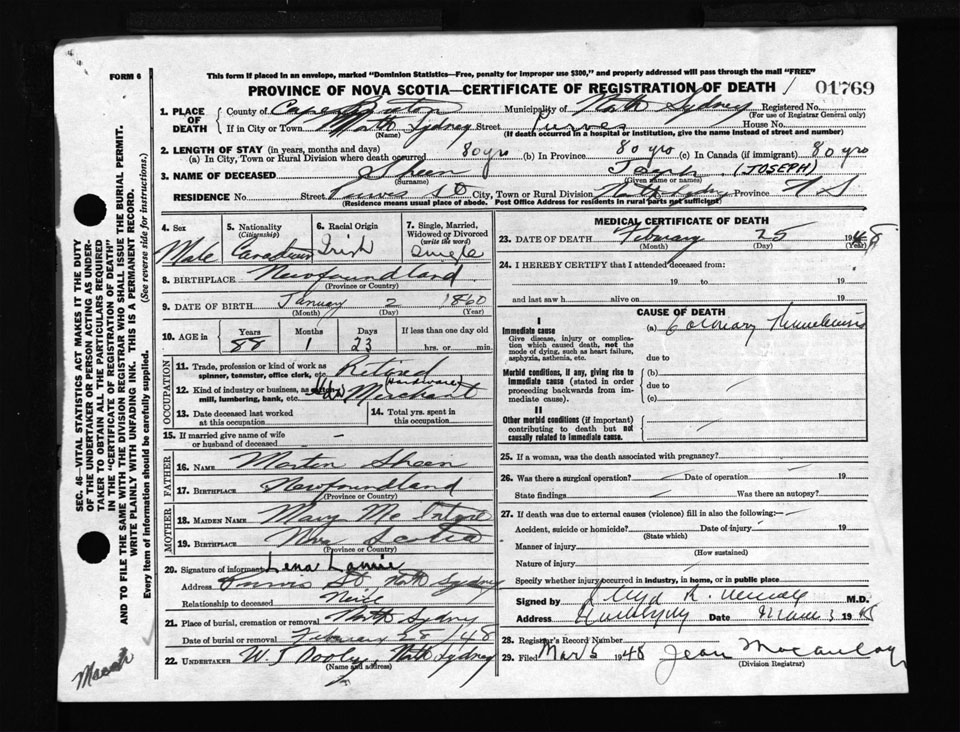 FORM 6
This form if placed in an envelope, marked "Dominion Statistics—Free, penalty for improper use $300," and properly addressed will pass through the mail "FREE"
PROVINCE OF NOVA SCOTIA—CERTIFICATE OF REGISTRATION OF DEATH / 01769
1. PLACE OF DEATH
County of Cape Breton Municipality of North Sydney Registered No.
(For use of Registrar General only)
If in City or Town North Sydney Street Purves House No.
(Name) (If death occurred in a hospital or institution, give the name instead of street and number)
2. LENGTH OF STAY (in years, months and days)
(a) In City, Town or Rural Division where death occurred 80 yrs (b) In Province 80 yrs (c) In Canada (if immigrant) 80 yrs
3. NAME OF DECEASED Skeen Joseph (JOSEPH)
(Surname) (Given name or names)
RESIDENCE No. Street Purves St City, Town or Rural Division North Sydney Province N S
(Residence means usual place of abode. Post Office Address for residents in rural parts not sufficient)
4. Sex
Male
5. Nationality
(Citizenship)
Canadian
6. Racial Origin
Irish
7. Single, Married, Widowed or Divorced
(write the word)
Single
8. BIRTHPLACE Newfoundland
(Province or Country)
9. DATE OF BIRTH January 2 1860
(Month) (Day) (Year)
10. AGE in
Years Months Days If less than one day old
88 1 23 hrs. or min.
OCCUPATION
11. Trade, profession or kind of work as spinner, teamster, office clerk, etc. Retired
12. Kind of industry or business, as mill, lumbering, bank, etc. (Hardware) Merchant
13. Date deceased last worked at this occupation
14. Total yrs. spent in this occupation
15. If married give name of wife or husband of deceased -
FATHER
16. NAME Martin Skeen
17. BIRTHPLACE Newfoundland
(Province or Country)
MOTHER
18. MAIDEN NAME Mary McIntyre
19. BIRTHPLACE Nova Scotia
(Province or Country)
20. Signature of informant Lena
Address Purves St, North Sydney
Relationship to deceased Neice
21. Place of burial, cremation or removal North Sydney
Date of burial or removal February 28/48
22. UNDERTAKER W. J. Dooley, North Sydney
(Name and address)
MEDICAL CERTIFICATE OF DEATH
23. DATE OF DEATH February 25 1948
(Month) (Day) (Year)
24. I HEREBY CERTIFY that I attended deceased from:
19 to 19
and last saw h alive on 19
CAUSE OF DEATH
I
Immediate cause
Give disease, injury or complication which caused death, not the mode of dying, such as heart failure, asphyxia, asthenia, etc.
(a) Coronary
due to
Morbid conditions, if any, giving rise to immediate cause (stated in order proceeding backwards from immediate cause).
(b)
due to
(c)
II
Other morbid conditions (if important) contributing to death but not causally related to immediate cause.
25. If a woman, was the death associated with pregnancy?
26. Was there a surgical operation? Date of operation 19
State findings Was there an autopsy?
27. If death was due to external causes (violence) fill in also the following:
Accident, suicide or homicide? Date of injury 19
(State which)
Manner of injury
(How sustained)
Nature of injury
Specify whether injury occurred in industry, in home, or in public place
Signed by M.D.
Address Date 1948
28. Registrar's Record Number
29. Filed Mar 5 1948 Jean Macaulay
(Division Registrar)
SEC. 46—VITAL STATISTICS ACT MAKES IT THE DUTY
OF THE UNDERTAKER OR PERSON ACTING AS UNDERTAKER TO OBTAIN ALL THE PARTICULARS REQUIRED
IN THE "CERTIFICATE OF REGISTRATION OF DEATH"
AND TO FILE THE SAME WITH THE DIVISION REGISTRAR WHO SHALL ISSUE THE BURIAL PERMIT.
WRITE PLAINLY WITH UNFADING INK. THIS IS A PERMANENT RECORD.
Every item of information should be carefully supplied. (See reverse side for instructions.)